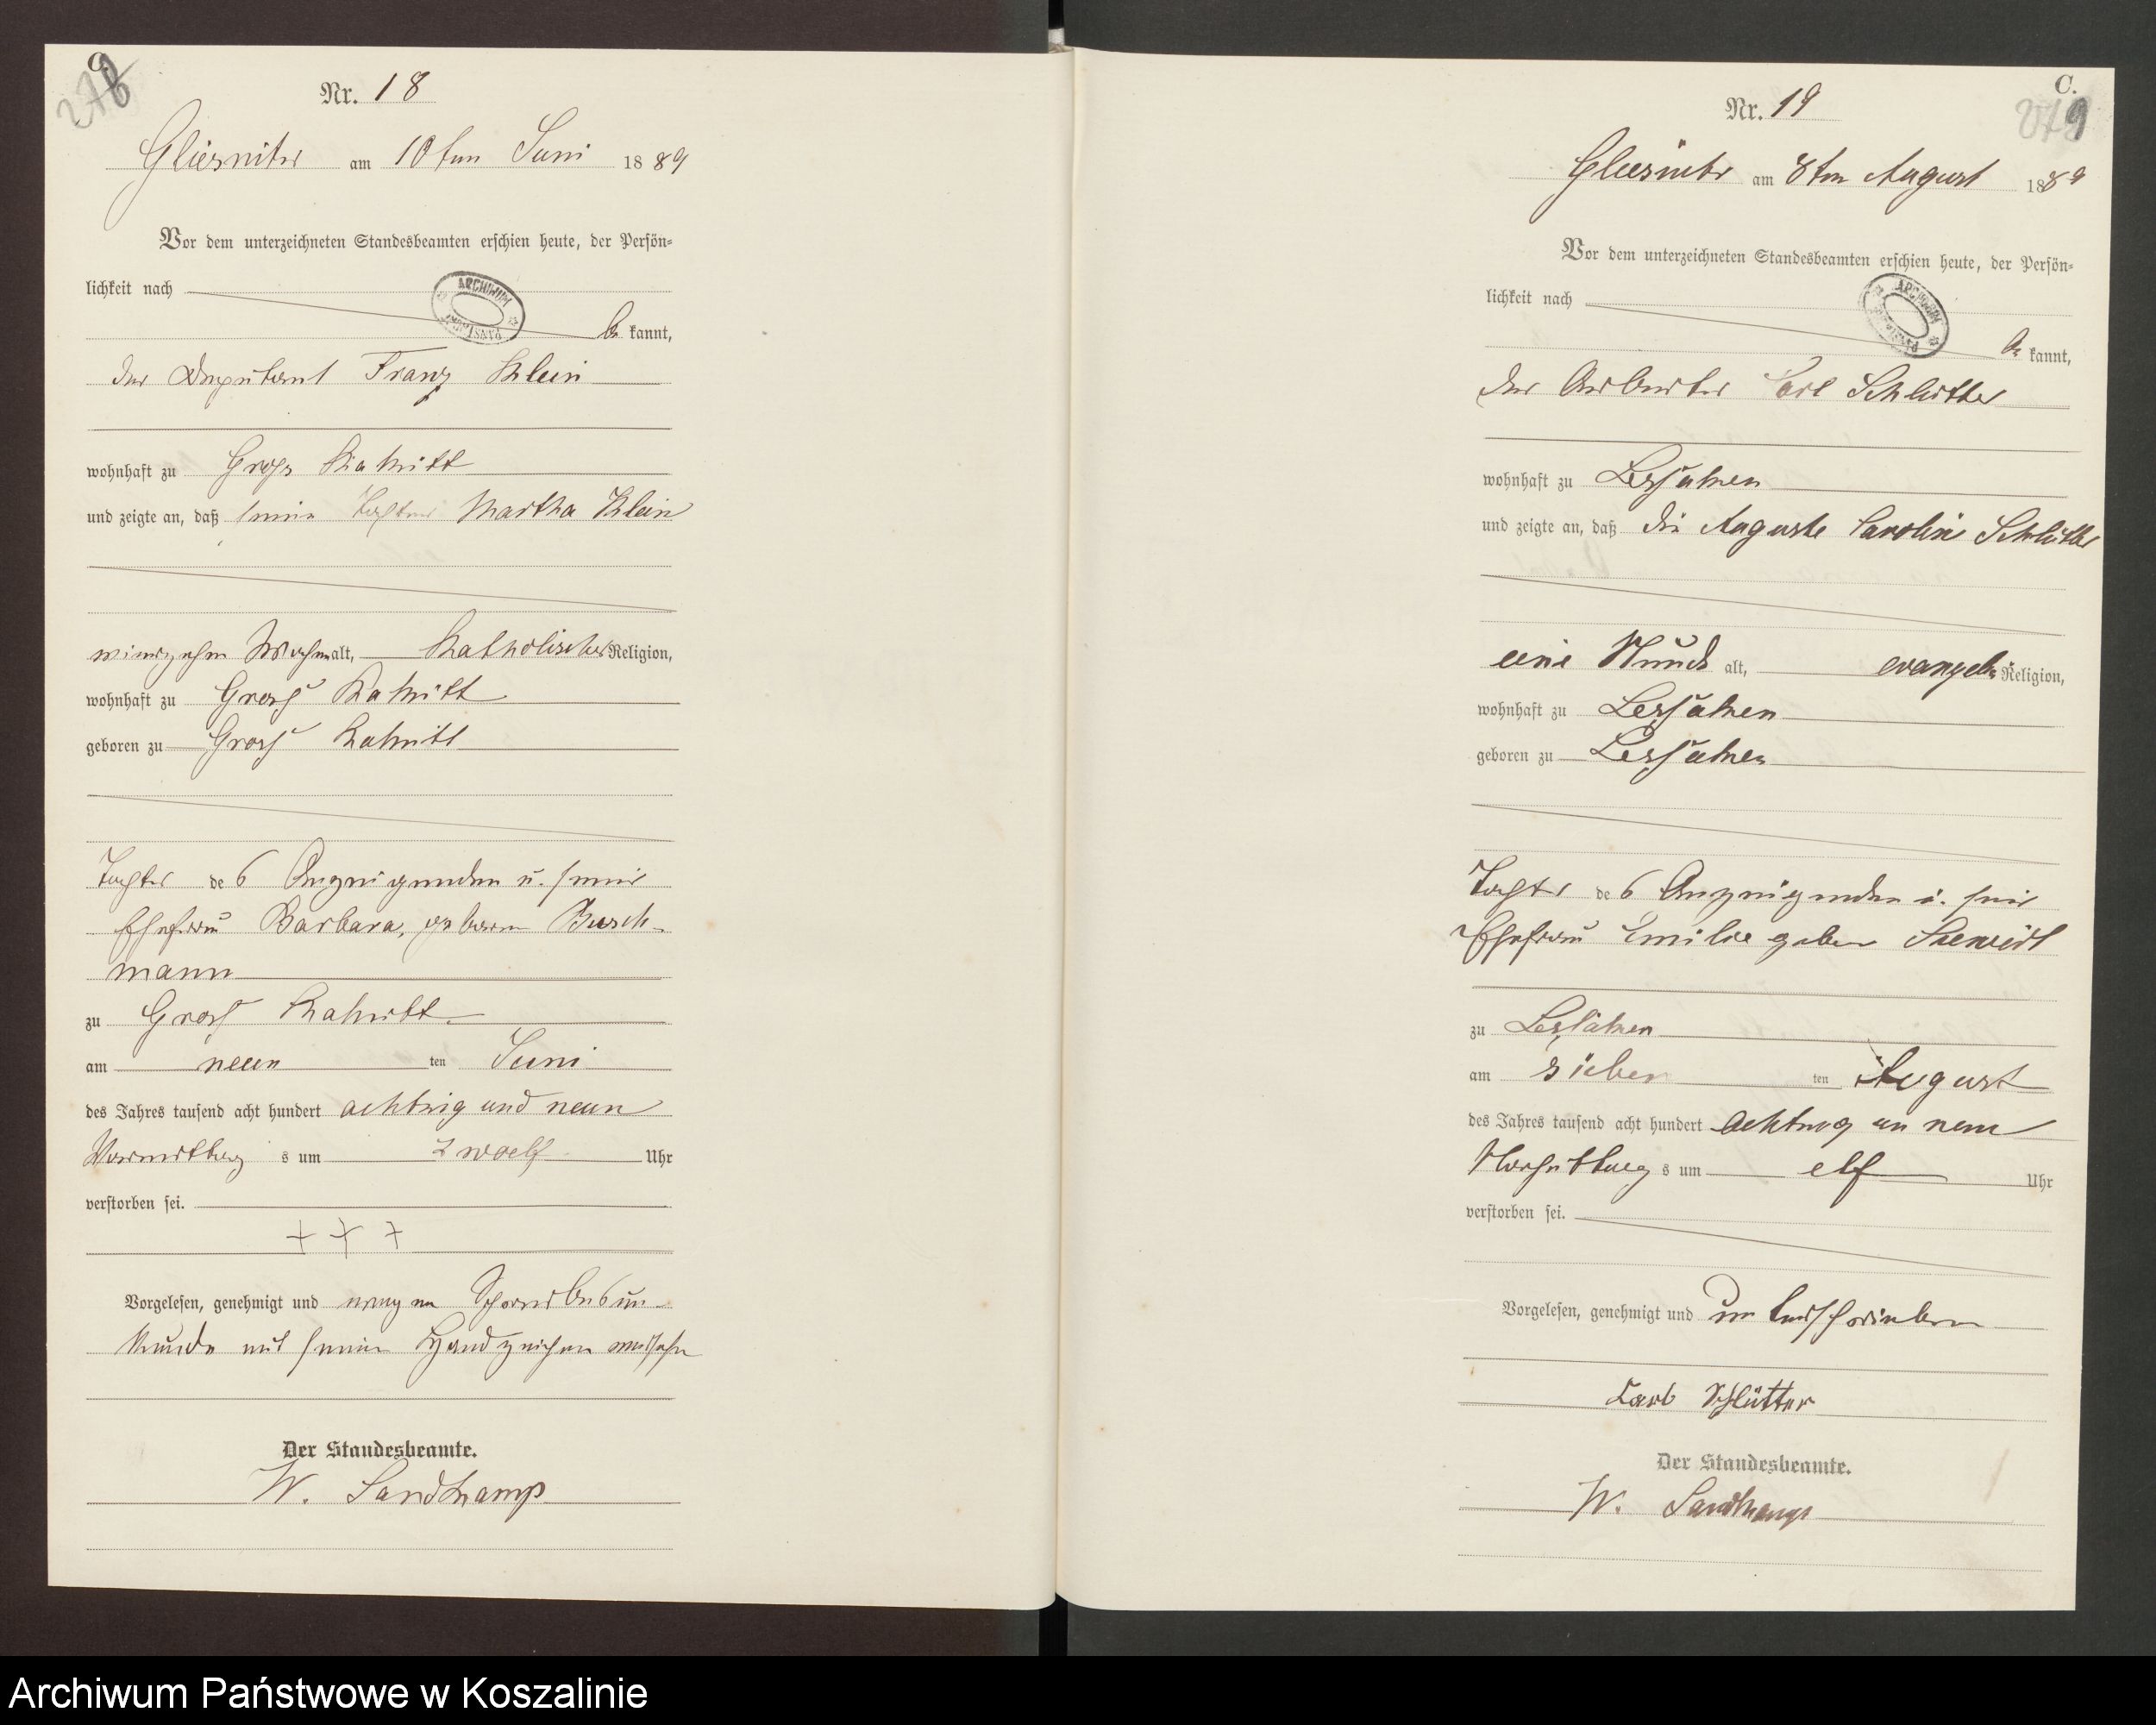 C.
278
Nr. 18
Gliesnitz am 10ten Juni 1889
Vor dem unterzeichneten Standesbeamten erschien heute, der Persön-
lichkeit nach
be kannt,
der Deputant Franz Klein
wohnhaft zu Gross
und zeigte an, daß seine Tochter Martha Klein
vierzehn Wochen alt, Katholischer Religion,
wohnhaft zu Gross
geboren zu Gross
Tochter des Anzeigenden u. seiner
Ehefrau Barbara, geboren Busch-
mann
zu Gross
am neun ten Juni
des Jahres tausend acht hundert achtzig und neun
Vormittag s um zwoelf Uhr
verstorben sei.
+ + +
Vorgelesen, genehmigt und wegen Schreibensun-
kunde mit seinen Handzeichen versehen
Der Standesbeamte.
W. Sandkamp
C.
279
Nr. 19
Gliesnitz am 8ten August 1889
Vor dem unterzeichneten Standesbeamten erschien heute, der Persön-
lichkeit nach
be kannt,
der Arbeiter Carl Schlütter
wohnhaft zu Lessaken
und zeigte an, daß die Auguste Caroline Schlütter
eine Stunde alt, evangel. Religion,
wohnhaft zu Lessaken
geboren zu Lessaken
Tochter des Anzeigenden u. seiner
Ehefrau Emilie geboren
zu Lessaken
am sieben ten August
des Jahres tausend acht hundert achtzig un neun
s um elf Uhr
verstorben sei.
Vorgelesen, genehmigt und unterschrieben
Carl Schlütter
Der Standesbeamte.
W. Sandkamp
Archiwum Państwowe w Koszalinie